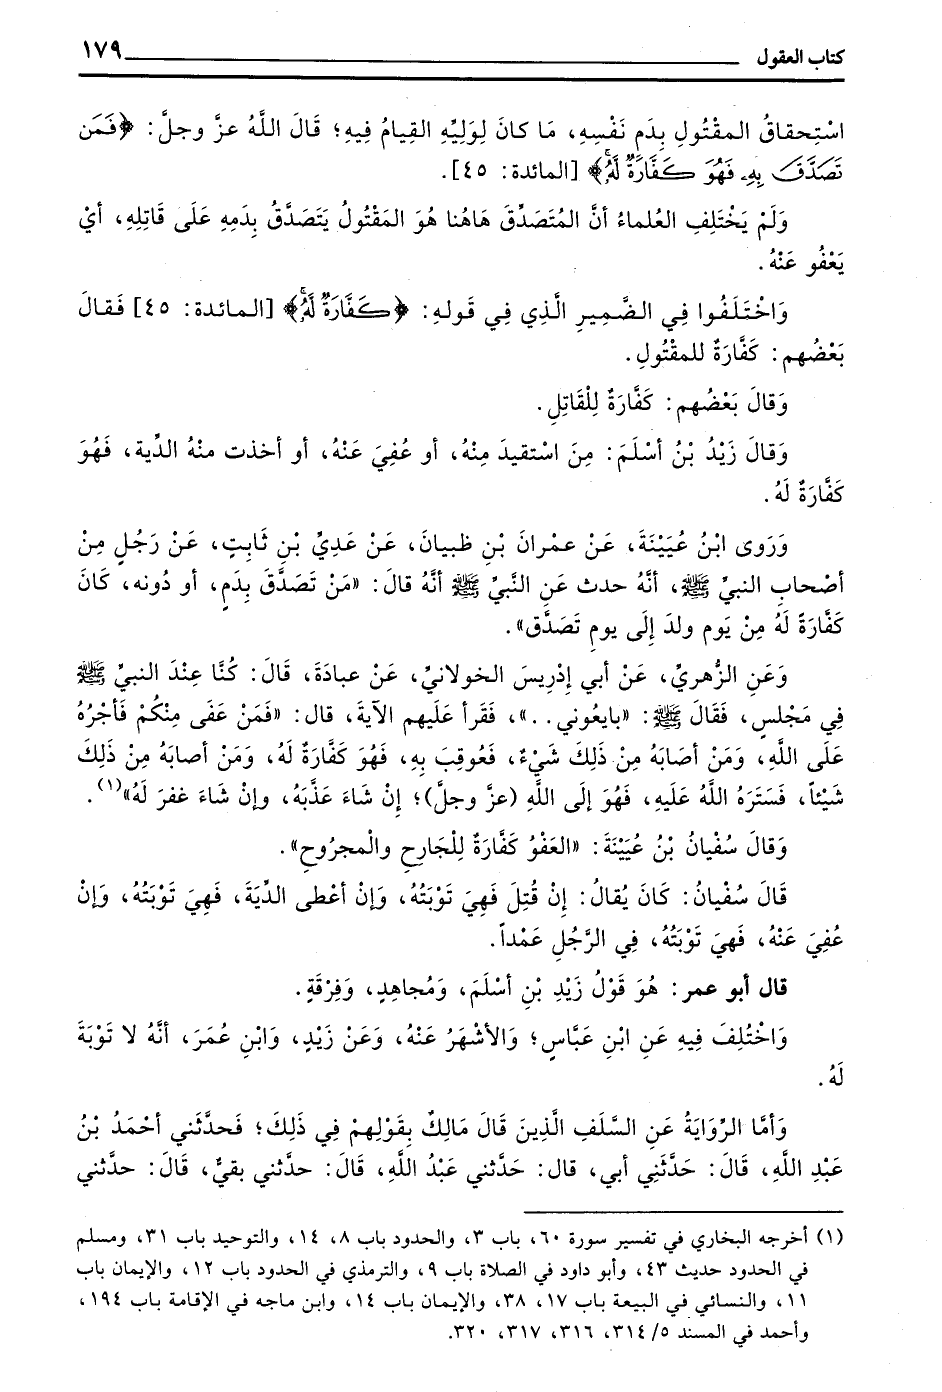 كتاب العقول ١٧٩
اسْتِحقاقُ المقْتُولِ بِدَمِ نَفْسِهِ، مَا كانَ لِوَلِيِّهِ القِيامُ فِيهِ؛ قَالَ اللَّهُ عزَّ وجلَّ: ﴿فَمَن
تَصَدَّقَ بِهِۦ فَهُوَ كَفَّارَةٌ لَّهُۥ﴾ [المائدة: ٤٥].
وَلَمْ يَخْتَلِفِ العُلماءُ أنَّ المُتَصَدِّقَ هَاهُنا هُوَ المَقْتُولُ يَتَصَدَّقُ بِدَمِهِ عَلى قَاتِلِهِ، أيْ
يَعْفُو عَنْهُ.
وَاخْتَلَفُوا فِي الضَّمِيرِ الَّذِي فِي قَولِهِ: ﴿كَفَّارَةٌ لَّهُۥ﴾ [المائدة: ٤٥] فَقالَ
بَعْضُهم: كَفَّارَةٌ للمقْتُولِ.
وَقالَ بَعْضُهم: كَفَّارَةٌ لِلْقَاتِلِ.
وَقالَ زَيْدُ بْنُ أسْلَمَ: مِنَ اسْتقيدَ مِنْهُ، أو عُفِيَ عَنْهُ، أو أخذت منْهُ الدِّية، فَهُوَ
كَفَّارَةٌ لَهُ.
وَرَوى ابْنُ عُيَيْنَةَ، عَنْ عمْرانَ بْنِ ظبيانَ، عَنْ عَدِيِّ بْنِ ثَابِتٍ، عَنْ رَجُلٍ مِنْ
أصْحابِ النبيِّ ﷺ، أنَّهُ حدث عَنِ النَّبيِّ ﷺ أنَّهُ قالَ: «مَنْ تَصَدَّقَ بِدَمٍ، أو دُونه، كَانَ
كَفَّارَةً لَهُ مِنْ يَوم ولدَ إلَى يومِ تَصَدَّق».
وَعَنِ الزُّهريِّ، عَنْ أبي إدْرِيسَ الخولانيِّ، عَنْ عبادَةَ، قَالَ: كُنَّا عِنْدَ النبيِّ ﷺ
فِي مَجْلسٍ، فَقَالَ ﷺ: «بايعُوني..»، فَقَرأ عَلَيهم الآيةَ، قال: «فَمَنْ عَفَى مِنْكُمْ فَأجْرُهُ
عَلَى اللَّهِ، وَمَنْ أصَابَهُ مِنْ ذَلِكَ شَيْءٌ، فَعُوقِبَ بِهِ، فَهُوَ كَفَّارَةٌ لَهُ، وَمَنْ أصابَهُ مِنْ ذَلِكَ
شَيْئاً، فَسَتَرَهُ اللَّهُ عَليهِ، فَهُوَ إلَى اللَّهِ (عزَّ وجلَّ)؛ إنْ شَاءَ عَذَّبَهُ، وإنْ شَاءَ غفرَ لَهُ»(١).
وَقالَ سُفْيانُ بْنُ عُيَيْنَةَ: «العَفْوُ كَفَّارَةٌ لِلْجَارِحِ والْمجرُوحِ».
قَالَ سُفْيانُ: كَانَ يُقالُ: إنْ قُتِلَ فَهِيَ تَوْبَتُهُ، وَإنْ أعْطى الدِّيَةَ، فَهِيَ تَوْبَتُهُ، وَإنْ
عُفِيَ عَنْهُ، فَهيَ تَوْبَتُهُ، فِي الرَّجُلِ عَمْداً.
قال أبو عمر: هُوَ قَوْلُ زَيْدِ بْنِ أسْلَمَ، وَمُجاهِدٍ، وَفِرْقَةٍ.
وَاخْتُلِفَ فيهِ عَنِ ابْنِ عَبَّاسٍ؛ وَالأشْهَرُ عَنْهُ، وَعَنْ زَيْدٍ، وَابْنِ عُمَرَ، أنَّهُ لا تَوْبَةَ
لَهُ.
وَأمَّا الرِّوَايَةُ عَنِ السَّلَفِ الَّذِينَ قَالَ مَالِكٌ بِقَوْلِهِمْ فِي ذَلِكَ؛ فَحدَّثَني أحْمَدُ بْنُ
عَبْدِ اللَّهِ، قَالَ: حَدَّثَنِي أبي، قال: حَدَّثني عَبْدُ اللَّهِ، قَالَ: حدَّثني بقيٌّ، قَالَ: حدَّثني
(١) أخرجه البخاري في تفسير سورة ٦٠، باب ٣، والحدود باب ٨، ١٤، والتوحيد باب ٣١، ومسلم
في الحدود حديث ٤٣، وأبو داود في الصلاة باب ٩، والترمذي في الحدود باب ١٢، والإيمان باب
١١، والنسائي في البيعة باب ١٧، ٣٨، والإيمان باب ١٤، وابن ماجه في الإقامة باب ١٩٤،
وأحمد في المسند ٥/ ٣١٤، ٣١٦، ٣١٧، ٣٢٠.